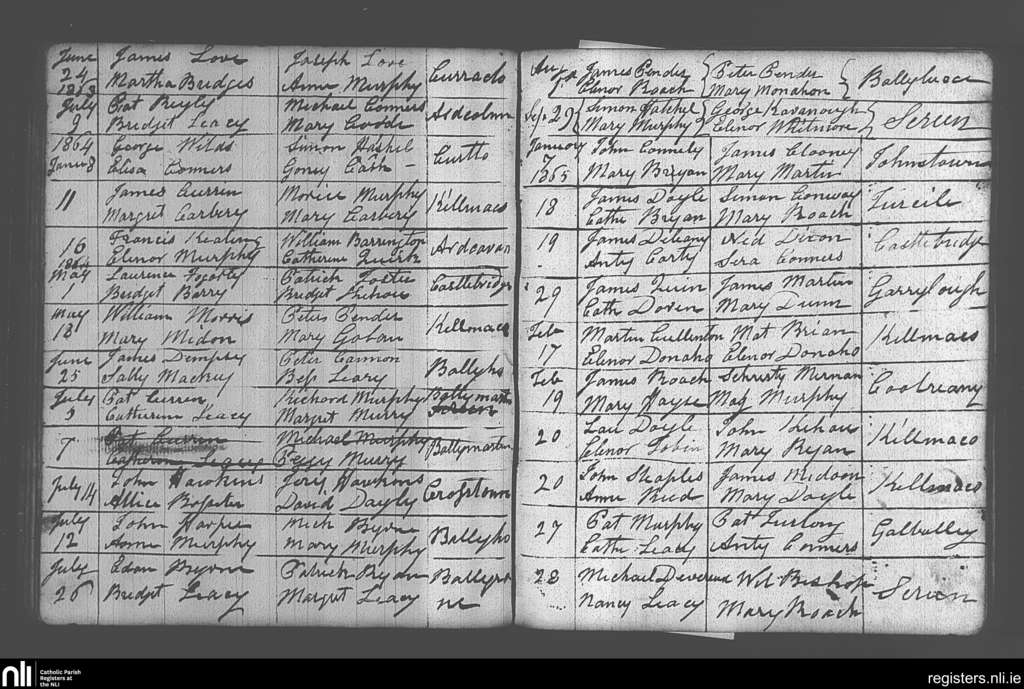 June James Love Joseph Love
24 Martha Bridges Ann Murphy Curraclo
July Pat Michael Conners
9 Bridget Leacy Mary Codde Ardcolum
1864 George Wilds Simon
8 Elisa Conners Goney Cath
11 James Curren Morice Murphy
Margret Carbery Mary Carbery Killmacs
16 Francis Keating William Barrington
Elenor Murphy Catherine Ardcavan
May Laurence Fogorty Patrick Foster
1 Bridget Barry Bridget Castlebridge
May William Morris Peter Bender
18 Mary Midon Mary Killmaco
June James Dempsey Peter Cannon
25 Sally Mackey Bess Leary Ballyho
July Pat Curren Richard Murphy Ballymartin
Catherine Leacy Margret Murry Screen
7 Pat Curren Michael Murphy
Catheron Leacy Peggy Murry Ballymartin
July 14 John Hawkins Jory Hawkins
Allice David Dayley Crosstown
July John Harpee Mich Byrne
12 Anne Murphy Mary Murphy Ballyho
July Edan Byrne Patrick Ryan
26 Bridget Leacy Margret Leacy
Aug James Bender Peter Bender
Elenor Roach Mary Monahon
Sep 29 Simon George Kavanough
Mary Murphy Elenor Whitmore Screen
January John Connely James Clooney
7 1865 Mary Bryan Mary Martin Johnstown
18 James Doyle Simon Conway
Cathe Bryan Mary Roach
19 James Deleany Nid Dixon
Anty Carty Sera Conners Castlebridge
29 James Quin James Martin
Cath Doren Mary Dunn Garrylough
Feb Martin Cullinton Mat Brian
17 Elenor Donaho Elenor Donaho Killmacs
Feb James Roach
19 Mary Hayse Mag Murphy Coolreany
20 Lau Doyle John
Elenor Tobin Mary Ryan Killmaco
20 John Staples James Midson
Anne Reed Mary Doyle Killmaco
27 Pat Murphy Pat Furlong
Cathe Leacy Anty Conners Galballey
28 Michael Devereux Wil Bishop
Nancy Leacy Mary Roach Screen
nli Catholic Parish
Registers at
the NLI
registers.nli.ie